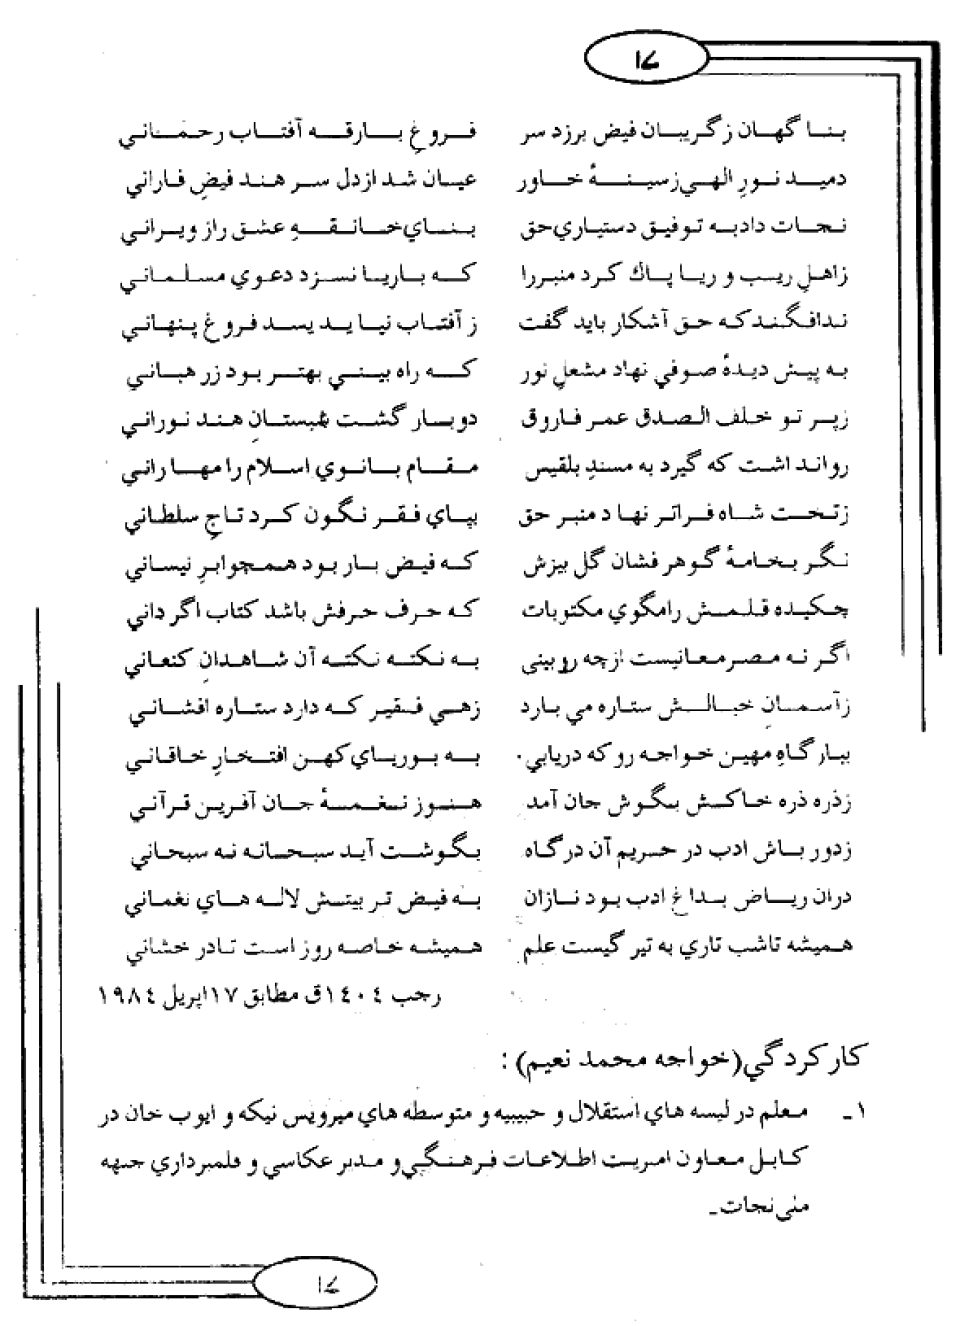 ١٧
بناگهان زگریبان فیض برزد سر فروغِ بارقه آفتاب رحماني
دمید نورِ الهي زسینهٔ خاور عیان شد ازدل سر هند فیضِ فاراني
نجات دادبه توفیق دستیاري حق بناي خانقهِ عشق راز ویراني
زاهلِ ریب و ریا پاك کرد منبررا که باریا نسزد دعوي مسلماني
ندافگند که حق آشکار باید گفت ز آفتاب نیاید پسد فروغ پنهاني
به پیش دیدهٔ صوفي نهاد مشعلِ نور که راه بیني بهتر بود زرهباني
زپر تو خلف الصدق عمر فاروق دوبار گشت شبستانِ هند نوراني
رواند اشت که گیرد به مسندِ بلقیس مقام بانوي اسلام را مهاراني
زتخت شاه فراتر نهاد منبر حق بپاي فقر نگون کرد تاجِ سلطاني
نگر بخامهٔ گوهر فشان گل بیزش که فیض بار بود همچوابرِ نیساني
چکیده قلمش رامگوي مکتوبات که حرف حرفش باشد کتاب اگر داني
اگر نه مصر معانیست ازچه روبینی به نکته نکته آن شاهدانِ کنعاني
زآسمانِ خیالش ستاره مي بارد زهي فقیر که دارد ستاره افشاني
ببارگاهِ مهین خواجه رو که دریابي به بوریاي کهن افتخارِ خاقاني
زذره ذره خاکش بگوش جان آمد هنوز نغمهٔ جان آفرین قرآني
زدور باش ادب در حریم آن درگاه بگوشت آید سبحانه نه سبحاني
دران ریاض بداغِ ادب بود نازان به فیض تر بیتش لاله هاي نعماني
همیشه تاشب تاري به تیر گیست علم همیشه خاصه روز است تادر خشاني
رجب ١٤٠٤ق مطابق ١٧اپریل ١٩٨٤
کارکردگي(خواجه محمد نعیم) :
١ـ معلم در لیسه هاي استقلال و حبیبیه و متوسطه هاي میرویس نیکه و ایوب خان در
کابل معاون امریت اطلاعات فرهنگي و مدیر عکاسي و فلمبرداري جبهه
ملی نجات۔
١٧